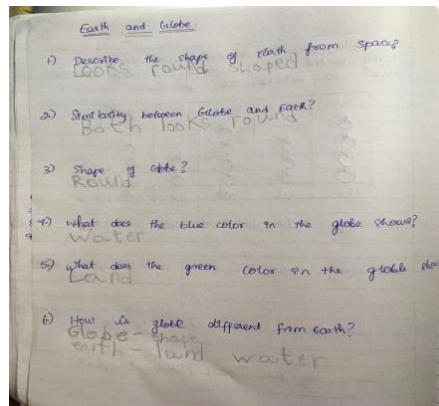 Earth and Globe.
1.) Describe the shape of Earth from space?
Looks round shaped
2.) Similarity between Globe and Earth?
Both looks round
3) Shape of Globe?
Round
4.) what does the blue color in the globe shows?
Water
5.) what does the green color in the globle show
Land
6.) How is globe different from earth?
Glope - shape
earth - land water